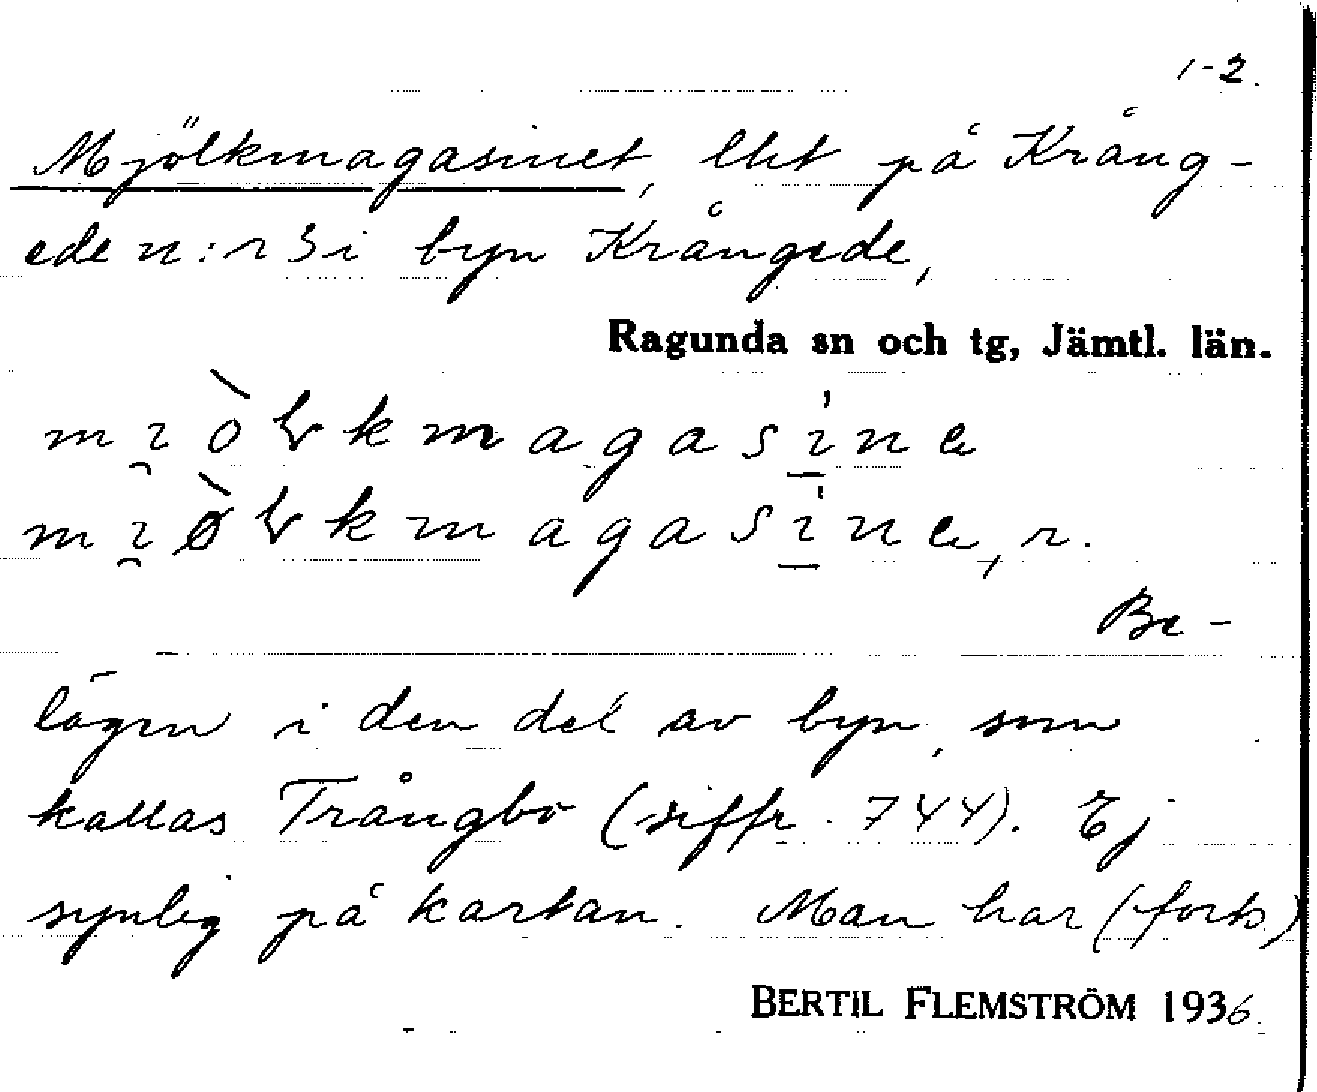 1-2.
Mjölkmagasinet, lht på Krång-
ede n:r 3 i byn Krångede,
Ragunda sn och tg, Jämtl. län.
Be-
lägen i den del av byn, som
kallas Trångbo (siffr. 744). Ej
synlig på kartan. Man har (forts.)
BERTIL FLEMSTRÖM 1936.